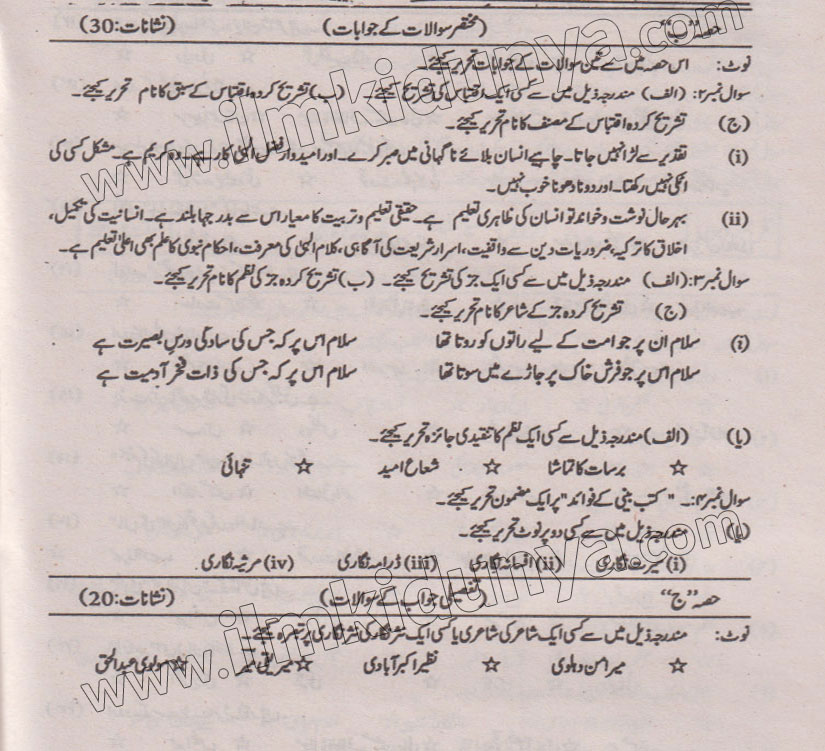 حصہ "ب" (مختصر سوالات کے جوابات) (نشانات:30)
نوٹ: اس حصہ میں سے تین سوالات کے جوابات تحریر کیجئے۔
سوال نمبر۲: (الف) مندرجہ ذیل میں سے کسی ایک اقتباس کی تشریح کیجئے۔ (ب) تشریح کردہ اقتباس کے سبق کا نام تحریر کیجئے۔
(ج) تشریح کردہ اقتباس کے مصنف کا نام تحریر کیجئے۔
(i) تقدیر سے لڑا نہیں جاتا۔ چاہیے انسان بلائے ناگہانی میں صبر کرے۔ اور امیدوار فضل الٰہی کا رہے۔ وہ کریم ہے۔ مشکل کسی کی
اٹکی نہیں رکھتا۔ اور رونا دھونا خوب نہیں۔
(ii) بہرحال نوشت و خواند تو انسان کی ظاہری تعلیم ہے۔ حقیقی تعلیم و تربیت کا معیار اس سے بدرجہا بلند ہے۔ انسانیت کی تکمیل،
اخلاق کا تزکیہ، ضروریات دین سے واقفیت، اسرار شریعت کی آگاہی، کلام الٰہی کی معرفت، احکام نبوی کا علم بھی اعلیٰ تعلیم ہے۔
سوال نمبر۳: (الف) مندرجہ ذیل میں سے کسی ایک جز کی تشریح کیجئے۔ (ب) تشریح کردہ جز کی نظم کا نام تحریر کیجئے۔
(ج) تشریح کردہ جز کے شاعر کا نام تحریر کیجئے۔
(i) سلام ان پر جو امت کے لیے راتوں کو روتا تھا سلام اس پر کہ جس کی سادگی درسِ بصیرت ہے
سلام اس پر جو فرش خاک پر جاڑے میں سوتا تھا سلام اس پر کہ جس کی ذات فخر آدمیت ہے
(یا) (الف) مندرجہ ذیل میں سے کسی ایک نظم کا تنقیدی جائزہ تحریر کیجئے۔
☆ برسات کا تماشا ☆ شعاع امید ☆ تنہائی
سوال نمبر۴:۔ "کتب بینی کے فوائد" پر ایک مضمون تحریر کیجئے۔
(یا) مندرجہ ذیل میں سے کسی دو پر نوٹ تحریر کیجئے۔
(i) سیرت نگاری (ii) افسانہ نگاری (iii) ڈرامہ نگاری (iv) مرثیہ نگاری
حصہ "ج" (تفصیلی جواب کے سوالات) (نشانات:20)
نوٹ: مندرجہ ذیل میں سے کسی ایک شاعر کی شاعری یا کسی ایک نثر نگار کی نثر نگاری پر تبصرہ کیجئے۔
☆ میر امن دہلوی ☆ نظیر اکبر آبادی ☆ میر تقی میر ☆ مولوی عبدالحق
www.ilmkidunya.com
www.ilmkidunya.com